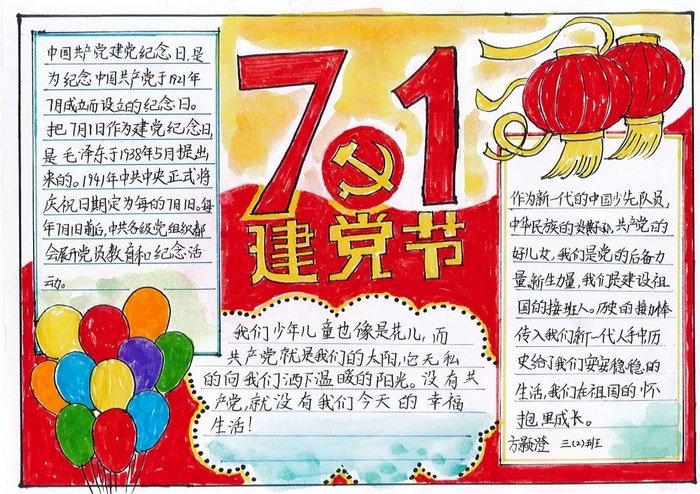 中国共产党建党纪念日,是
为纪念中国共产党于1921年
7月成立而设立的纪念日。
把7月1日作为建党纪念日,
是毛泽东于1938年5月提出
来的。1941年中共中央正式将
庆祝日期定为每的7月1日。每
年7月1日前后,中共各级党组织都
会展开党员教育和纪念活
动。
7.1
建党节
我们少年儿童也像是花儿,而
共产党就是我们的太阳,它无私
的向我们洒下温暖的阳光。没有共
产党,就没有我们今天的幸福
生活!
作为新一代的中国少先队员,
中华民族的 共产党的
好儿女,我们是党的后备力
量,新生力量,我们是建设祖
国的接班人。历史的接力棒
传入我们新一代人手中,历
史给了我们安安稳稳的
生活,我们在祖国的怀
抱里成长。
方颢澄 三(2)班